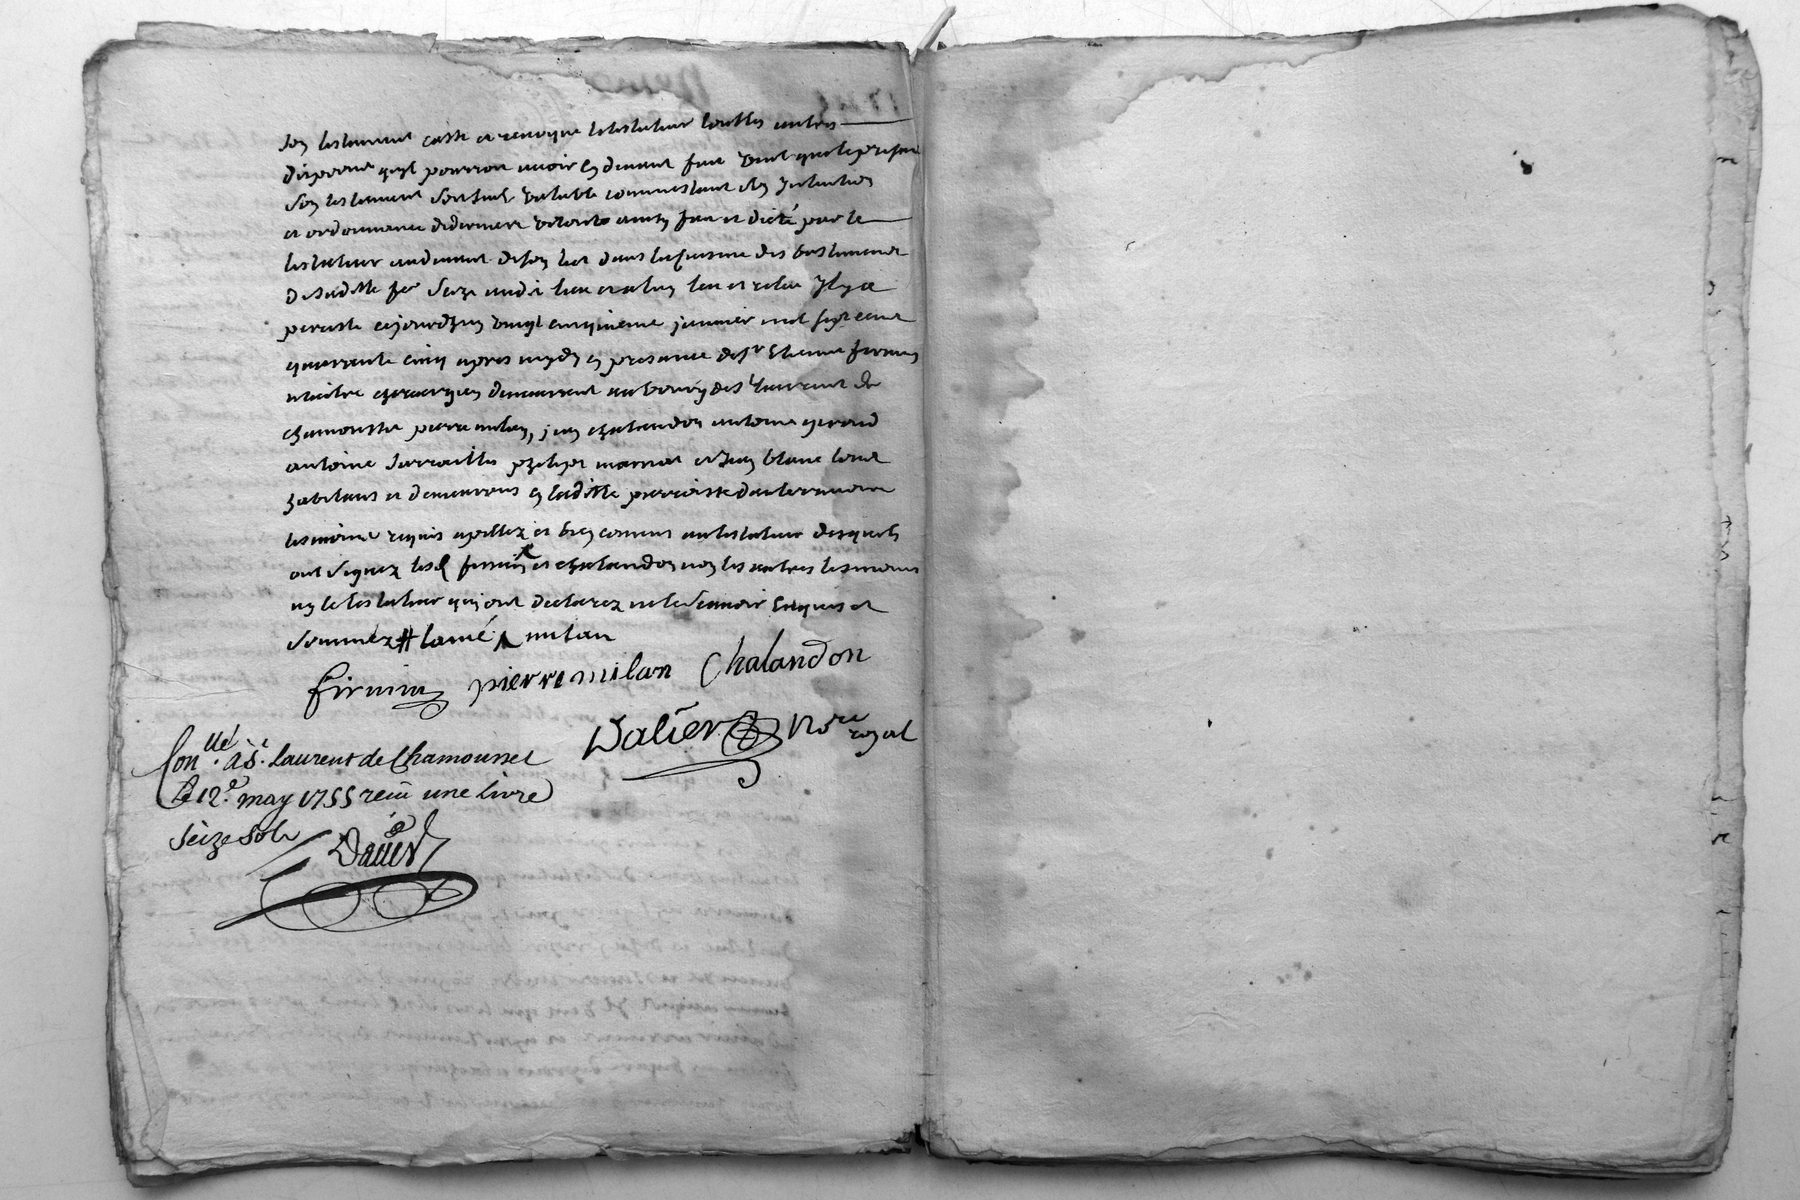 son testament casse et revoque le testateur touttes autres
dispoōns quil pourroit avoir cy devant fait veut que le present
son testament soit seul valable comme etant son intention
et ordonnance de derniere volonté ainsy fait et dicté par le
testateur au devant de son lict dans la cuisine des bastiments
de laditte seize au dt lieu et aluy leu et releu Il y a
persisté cejourdhuy vingt cinquieme janvier mil sept cent
quarante cinq apres midy en presance de sr Etienne firmin
maitre chirurgien demeurant au bourg de st laurent de
chamousset pierre milan, jean chalandon antoine giroud
antoine philipe et jean blanc touts
habitans et demeurans en laditte parroisse d'auterivoire
tesmoins requis apellez et bien connus au testateur desquels
ont signez lesd firmin et chalandon non les autres tesmoins
ny le testateur qui ont declarez ne le scavoir Enquis et
sommez # milan
firmin pierre milan Chalandon
Dalier Nore royal
Conllé. à st. Laurent de Chamousset
Le 12e. may 1755 recu une livre
Seize Sols